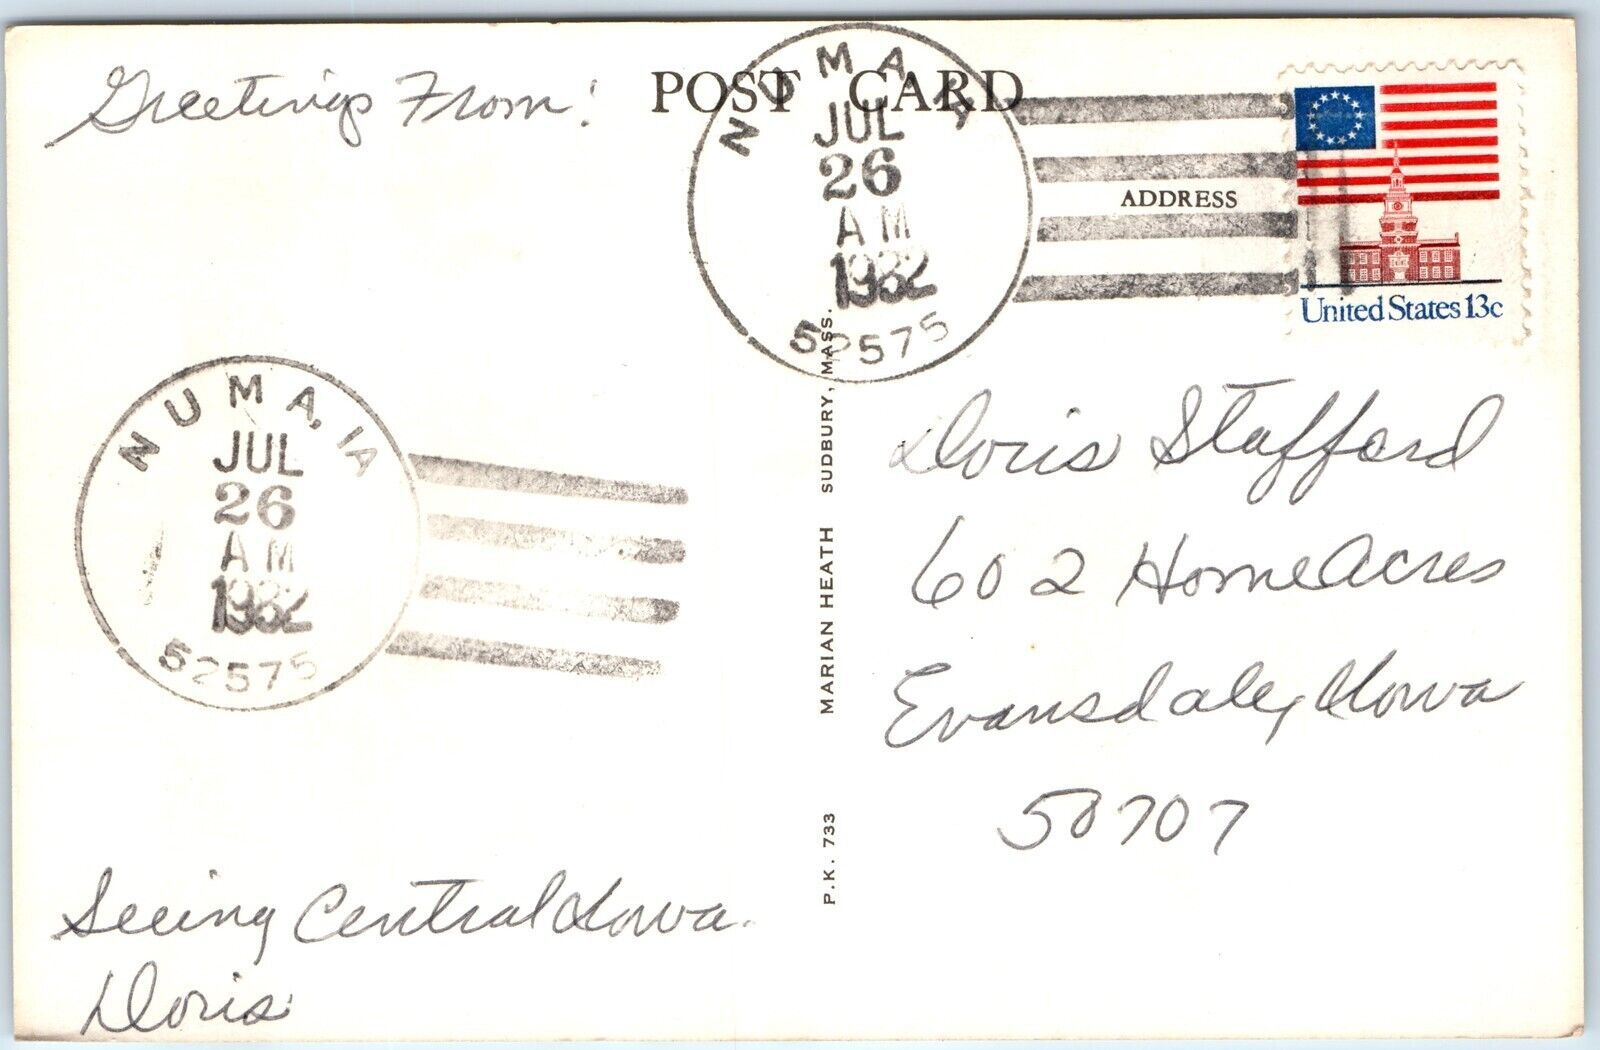 Greetings From!
POST CARD
NUMA, IA
JUL
26
AM
1982
52575
ADDRESS
United States 13c
NUMA, IA
JUL
26
AM
1982
52575
Doris Stafford
602 Home Acres
Evansdale, Iowa
50707
P.K. 733 MARIAN HEATH SUDBURY, MASS.
Seeing Central Iowa.
Doris